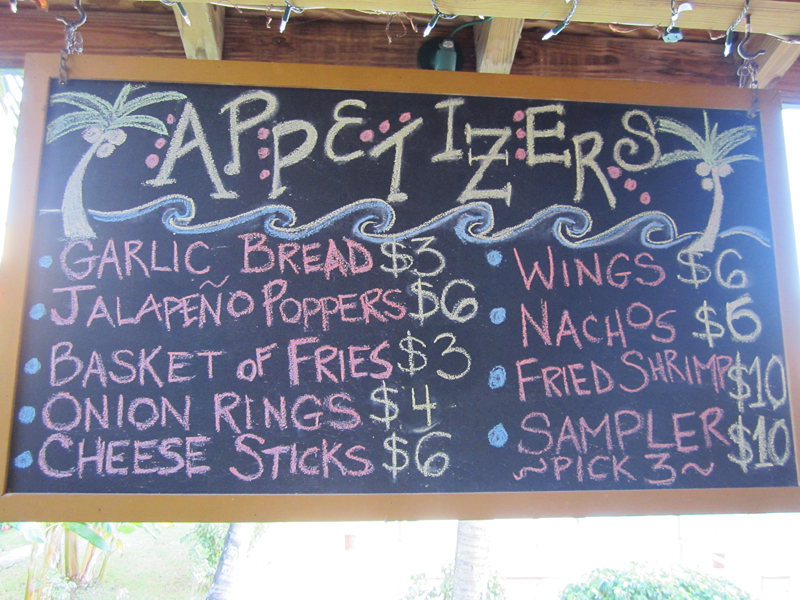 APPETIZERS
GARLIC BREAD $3
JALAPEÑO POPPERS $6
BASKET OF FRIES $3
ONION RINGS $4
CHEESE STICKS $6
WINGS $6
NACHOS $6
FRIED SHRIMP $10
SAMPLER $10
~PICK 3~